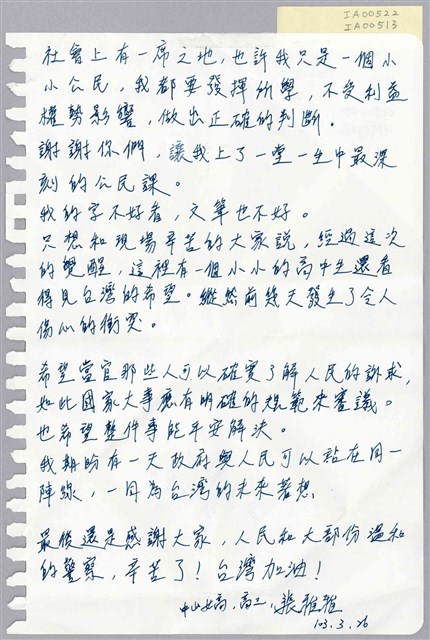 IA00522
IA00513
社會上有一席之地,也許我只是一個小
小公民,我都要發揮所學,不受利益
權勢影響,做出正確的判斷。
謝謝你們,讓我上了一堂一生中最深
刻的公民課。
我的字不好看,文筆也不好。
只想和現場辛苦的大家說,經過這次
的覺醒,這裡有一個小小的高中生還看
得見台灣的希望。縱然前幾天發生了令人
傷心的衝突。
希望當官那些人可以確實了解人民的訴求,
如此國家大事應有明確的規範來審議。
也希望整件事能平安解決。
我期盼有一天政府與人民可以站在同一
陣線,一同為台灣的未來著想
最後還是感謝大家,人民和大部份溫和
的警察,辛苦了!台灣加油!
中山女高,高二,張雅雅
103.3.26